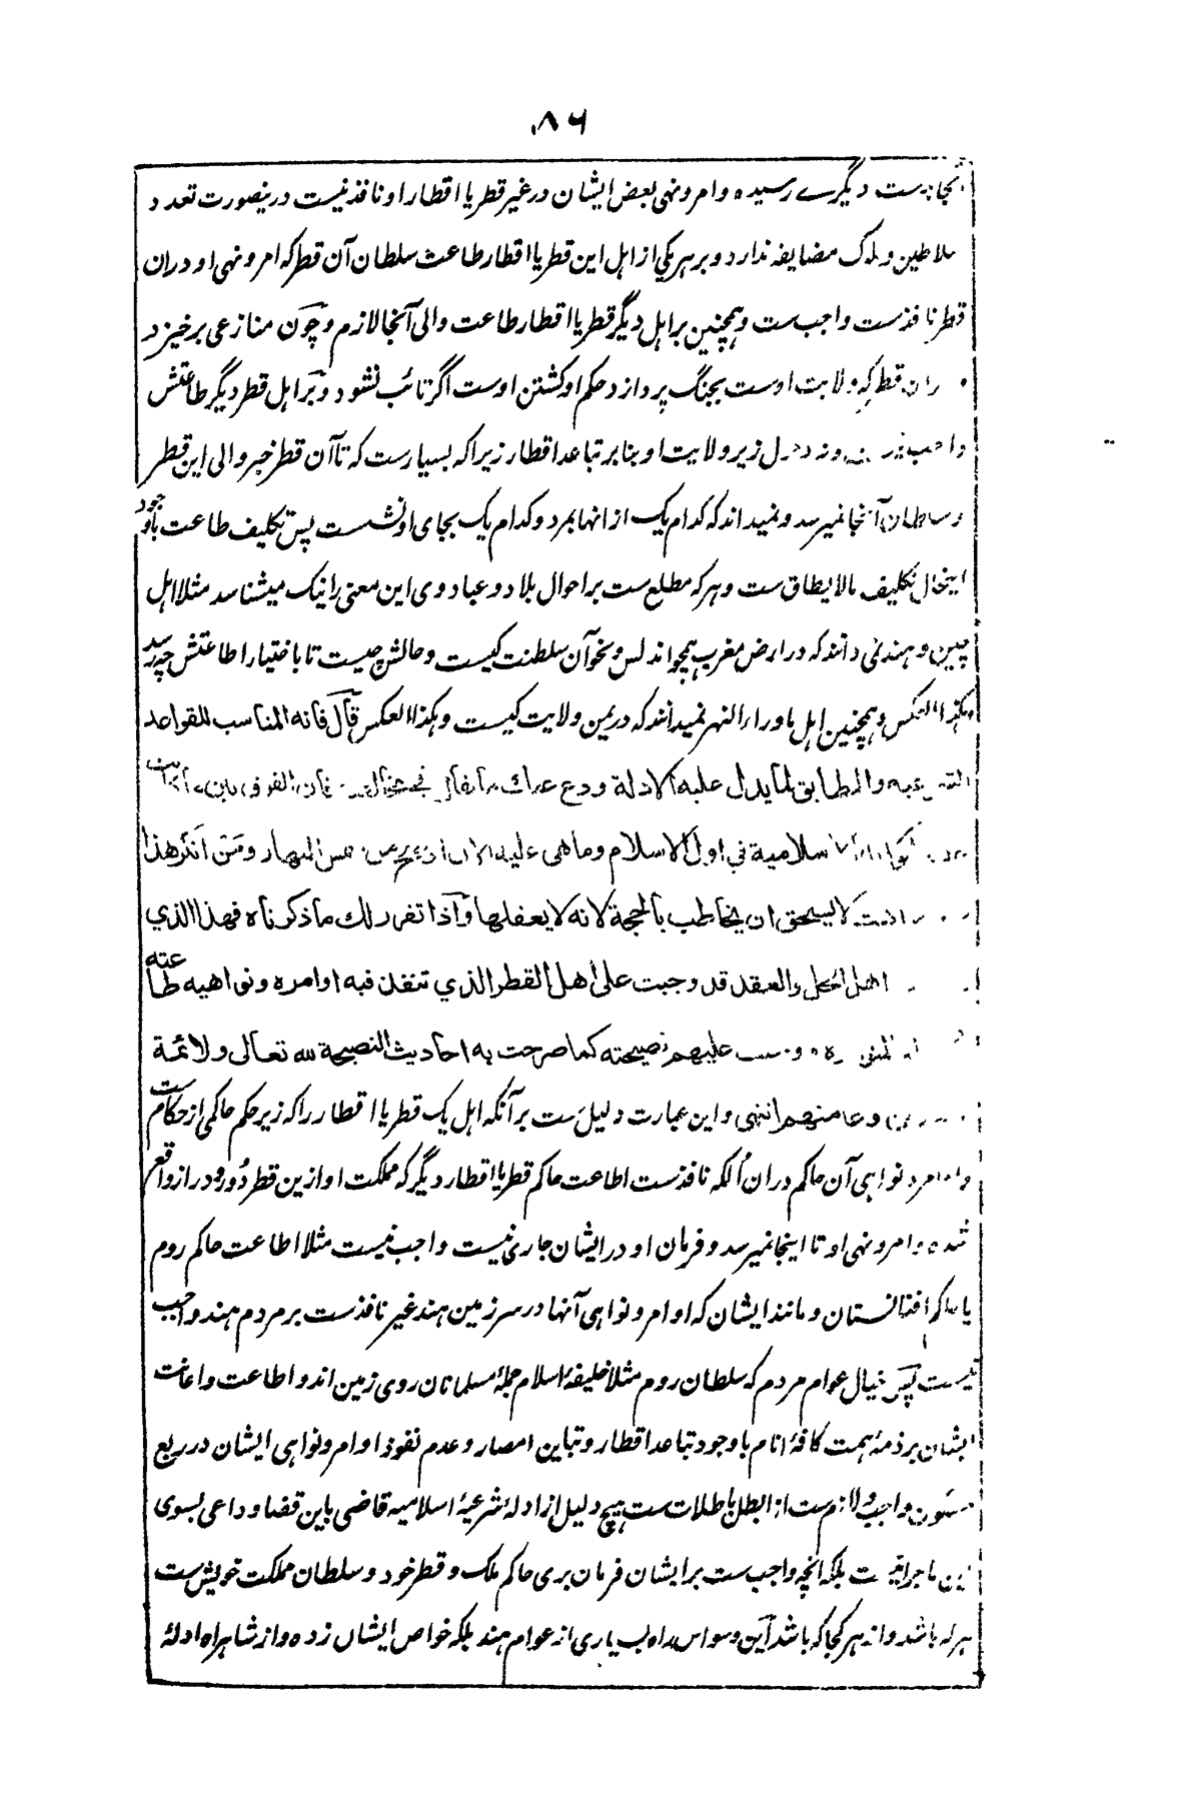 ۸۶
دیگرے رسیده و امر و نهی بعض ایشان در غیر قطر یا اقطار او نافذ نیست درینصورت تعدد
سلاطین و ملوک مضایقه ندارد و بر هر یکی از اهل این قطر یا اقطار طاعت سلطان آن قطر که امر و نهی او در ان
قطر نافذست واجب ست و همچنین بر اهل دیگر قطر یا اقطار طاعت والی آنجا لازم و چون منازعی برخیزد
قطر که ولایت اوست بجنگ پردازد حکم او کشتن اوست اگر تائب نشود و بر اهل قطر دیگر طاعتش
زیر ولایت او بنابر تباعد اقطار زیرا که بسیارست که تا آن قطر خبر والی این قطر
و سلطان آنجا نمیرسد و نمیداند که کدام یک از انها بمرد و کدام یک بجای او نشست پس تکلیف طاعت باوجود
اینحال تکلیف مالایطاق ست و هر که مطلع ست بر احوال بلاد و عباد وی این معنی را نیک میشناسد مثلا اهل
چین و هند نمی دانند که در ارض مغرب همچو اندلس و نحو آن سلطنت کیست و حالش چیست تا باختیار اطاعتش چه رسد
و همچنین اهل ماوراء النهر نمیدانند که در یمن ولایت کیست و هکذا العکس قال فانه المناسب للقواعد
والمطابق لما یدل علیه الادلة ودع عنك ما یقال فی مخالفته
الاسلامیة فی اول الاسلام وما هی علیه الان اوضح من شمس النهار ومن انکر هذا
لا یستحق ان یخاطب بالحجة لانه لا یعقلها واذا تقرر لك ما ذکرناه فهذا الذی
اهل الحل والعقد قد وجبت علی اهل القطر الذی تنفذ فیه اوامره ونواهیه طاعته
علیهم نصیحته کما صرحت به احادیث النصیحة لله تعالی ولائمة
وعامتهم انتهی و این عبارت دلیل ست بر آنکه اهل یک قطر یا اقطار را که زیر حکم حاکمی از حکام ست
و اوامر و نواهی آن حاکم در ان ممالک نافذست اطاعت حاکم قطر یا اقطار دیگر که مملکت او ازین قطر دور و دراز واقع
شده و امر و نهی او تا اینجا نمیرسد و فرمان او در ایشان جاری نیست واجب نیست مثلا اطاعت حاکم روم
یا حاکم افغانستان و مانند ایشان که اوامر و نواهی آنها در سرزمین هند غیر نافذست بر مردم هند واجب
نیست پس خیال عوام مردم که سلطان روم مثلا خلیفهٔ اسلام جملهٔ مسلمانان روی زمین اند و اطاعت و اعانت
ایشان بر ذمهٔ همت کافهٔ انام با وجود تباعد اقطار و تباین امصار و عدم نفوذ اوامر و نواهی ایشان در ربع
مسکون واجب و لازم ست از ابطل باطلات ست هیچ دلیل از ادلهٔ شرعیهٔ اسلامیه قاضی باین قضا و داعی بسوی
این ماجرا نیست بلکه انچه واجب ست بر ایشان فرمان بری حاکم ملک و قطر خود و سلطان مملکت خویش ست
هر که باشد و از هر کجا که باشد آین وسواس راه بسیاری از عوام هند بلکه خواص ایشان زده و از شاهراه ادلهٔ